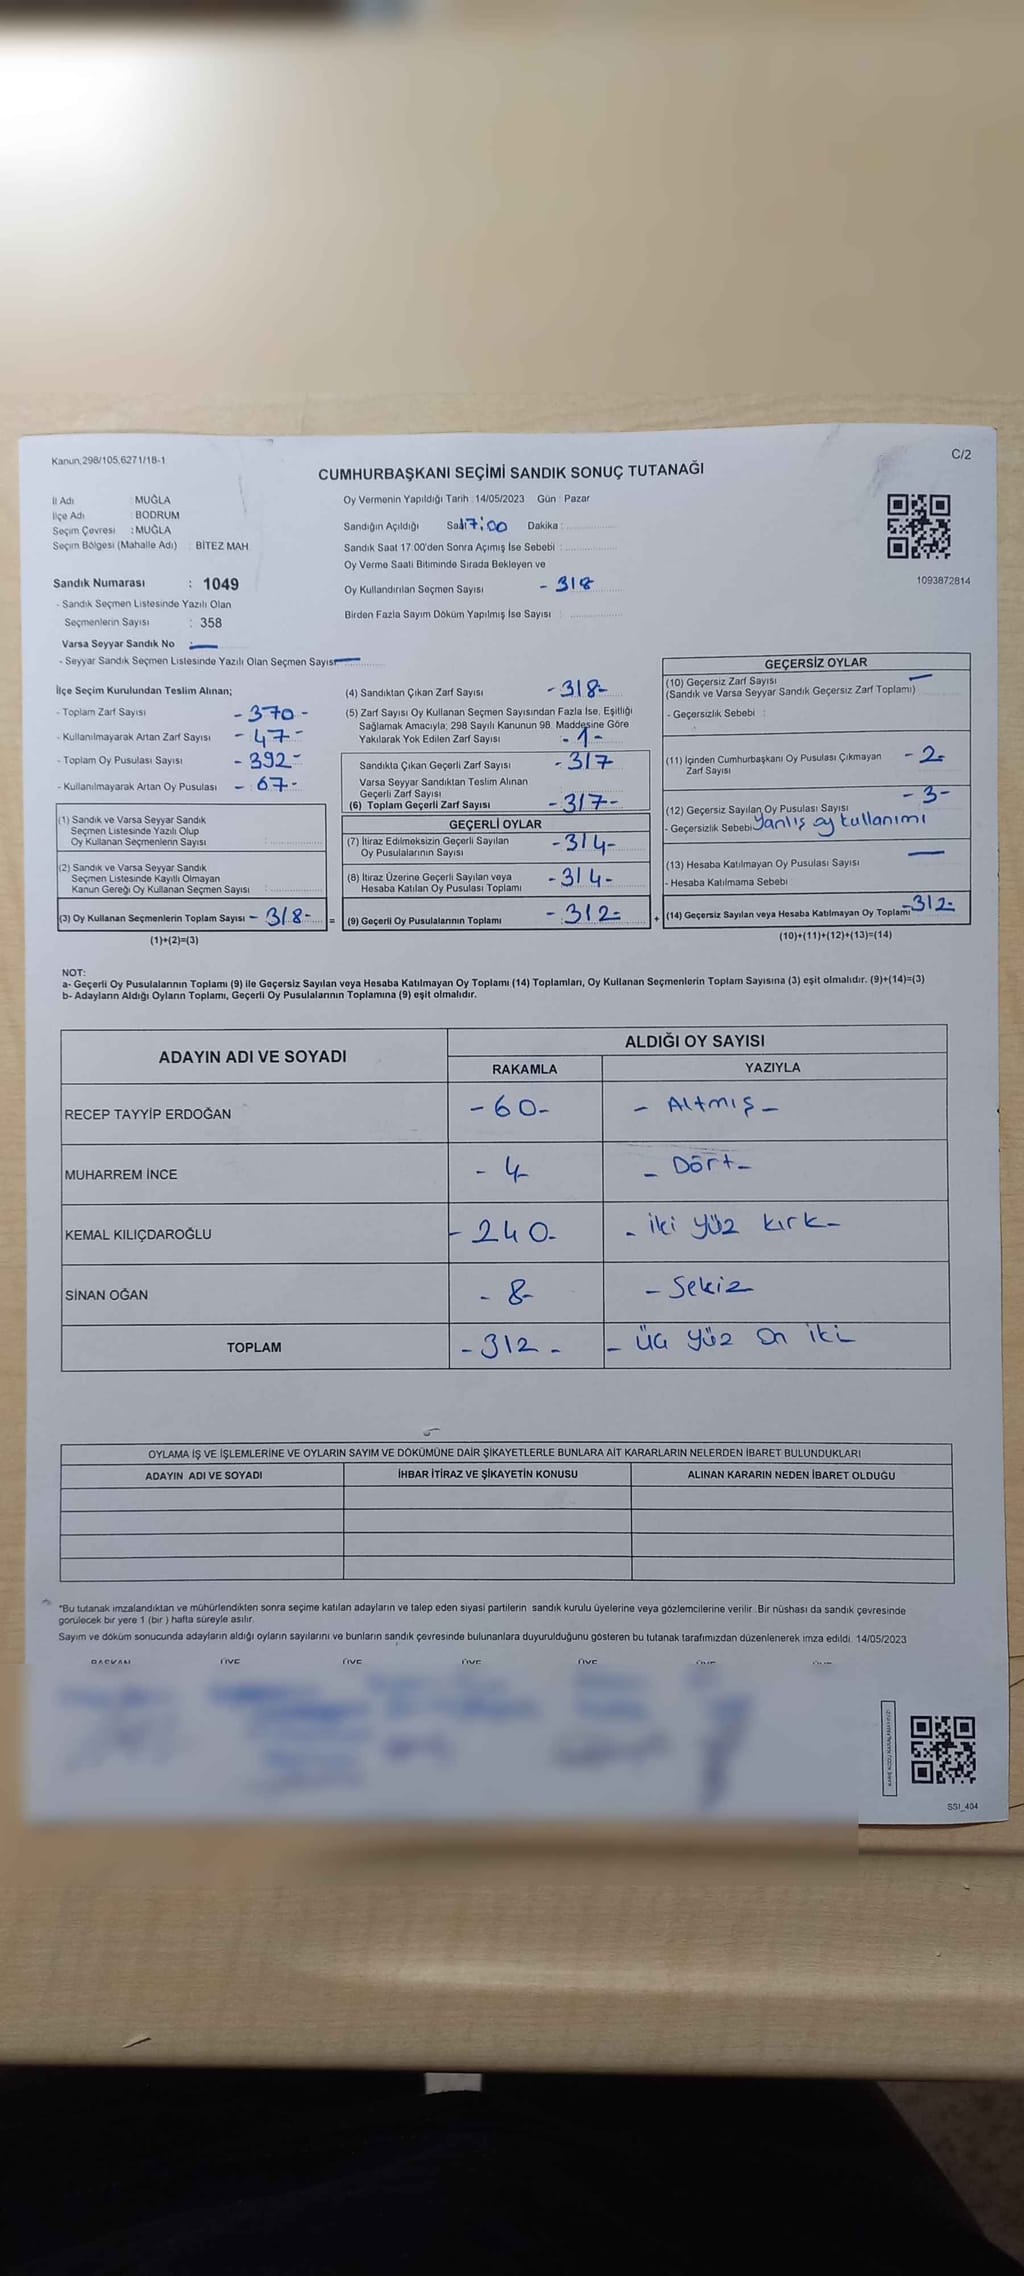 Kanun,298/105,6271/18-1
C/2
CUMHURBAŞKANI SEÇİMİ SANDIK SONUÇ TUTANAĞI
İl Adı : MUĞLA
İlçe Adı : BODRUM
Seçim Çevresi : MUĞLA
Seçim Bölgesi (Mahalle Adı) : BİTEZ MAH
Sandık Numarası : 1049
- Sandık Seçmen Listesinde Yazılı Olan
Seçmenlerin Sayısı : 358
Varsa Seyyar Sandık No : —
- Seyyar Sandık Seçmen Listesinde Yazılı Olan Seçmen Sayısı —
Oy Vermenin Yapıldığı Tarih : 14/05/2023 Gün : Pazar
Sandığın Açıldığı Saat 17:00 Dakika :
Sandık Saat 17.00'den Sonra Açımış İse Sebebi :
Oy Verme Saati Bitiminde Sırada Bekleyen ve
Oy Kullandırılan Seçmen Sayısı - 318
Birden Fazla Sayım Döküm Yapılmış İse Sayısı :
1093872814
İlçe Seçim Kurulundan Teslim Alınan;
- Toplam Zarf Sayısı - 370 -
- Kullanılmayarak Artan Zarf Sayısı - 47 -
- Toplam Oy Pusulası Sayısı - 392 -
- Kullanılmayarak Artan Oy Pusulası - 67 -
(1) Sandık ve Varsa Seyyar Sandık
Seçmen Listesinde Yazılı Olup
Oy Kullanan Seçmenlerin Sayısı :
(2) Sandık ve Varsa Seyyar Sandık
Seçmen Listesinde Kayıtlı Olmayan
Kanun Gereği Oy Kullanan Seçmen Sayısı :
(3) Oy Kullanan Seçmenlerin Toplam Sayısı - 318 - =
(1)+(2)=(3)
(4) Sandıktan Çıkan Zarf Sayısı - 318 -
(5) Zarf Sayısı Oy Kullanan Seçmen Sayısından Fazla İse, Eşitliği
Sağlamak Amacıyla; 298 Sayılı Kanunun 98. Maddesine Göre
Yakılarak Yok Edilen Zarf Sayısı - 1 -
Sandıkta Çıkan Geçerli Zarf Sayısı - 317
Varsa Seyyar Sandıktan Teslim Alınan
Geçerli Zarf Sayısı
(6) Toplam Geçerli Zarf Sayısı - 317 -
GEÇERLİ OYLAR
(7) İtiraz Edilmeksizin Geçerli Sayılan
Oy Pusulalarının Sayısı - 314 -
(8) İtiraz Üzerine Geçerli Sayılan veya
Hesaba Katılan Oy Pusulası Toplamı - 314 -
(9) Geçerli Oy Pusulalarının Toplamı - 312 - +
GEÇERSİZ OYLAR
(10) Geçersiz Zarf Sayısı —
(Sandık ve Varsa Seyyar Sandık Geçersiz Zarf Toplamı)
- Geçersizlik Sebebi :
(11) İçinden Cumhurbaşkanı Oy Pusulası Çıkmayan - 2 -
Zarf Sayısı
(12) Geçersiz Sayılan Oy Pusulası Sayısı - 3 -
- Geçersizlik Sebebi Yanlış oy kullanımı
(13) Hesaba Katılmayan Oy Pusulası Sayısı —
- Hesaba Katılmama Sebebi
(14) Geçersiz Sayılan veya Hesaba Katılmayan Oy Toplamı - 312 -
(10)+(11)+(12)+(13)=(14)
NOT:
a- Geçerli Oy Pusulalarının Toplamı (9) ile Geçersiz Sayılan veya Hesaba Katılmayan Oy Toplamı (14) Toplamları, Oy Kullanan Seçmenlerin Toplam Sayısına (3) eşit olmalıdır. (9)+(14)=(3)
b- Adayların Aldığı Oyların Toplamı, Geçerli Oy Pusulalarının Toplamına (9) eşit olmalıdır.
ADAYIN ADI VE SOYADI ALDIĞI OY SAYISI
RAKAMLA YAZIYLA
RECEP TAYYİP ERDOĞAN - 60 - - Altmış -
MUHARREM İNCE - 4 - - Dört -
KEMAL KILIÇDAROĞLU - 240 - - iki yüz kırk -
SİNAN OĞAN - 8 - - Sekiz
TOPLAM - 312 - - üç yüz on iki
OYLAMA İŞ VE İŞLEMLERİNE VE OYLARIN SAYIM VE DÖKÜMÜNE DAİR ŞİKAYETLERLE BUNLARA AİT KARARLARIN NELERDEN İBARET BULUNDUKLARI
ADAYIN ADI VE SOYADI İHBAR İTİRAZ VE ŞİKAYETİN KONUSU ALINAN KARARIN NEDEN İBARET OLDUĞU
"Bu tutanak imzalandıktan ve mühürlendikten sonra seçime katılan adayların ve talep eden siyasi partilerin sandık kurulu üyelerine veya gözlemcilerine verilir. Bir nüshası da sandık çevresinde
görülecek bir yere 1 (bir ) hafta süreyle asılır.
Sayım ve döküm sonucunda adayların aldığı oyların sayılarını ve bunların sandık çevresinde bulunanlara duyurulduğunu gösteren bu tutanak tarafımızdan düzenlenerek imza edildi. 14/05/2023
BAŞKAN ÜYE ÜYE ÜYE ÜYE
SSI_404